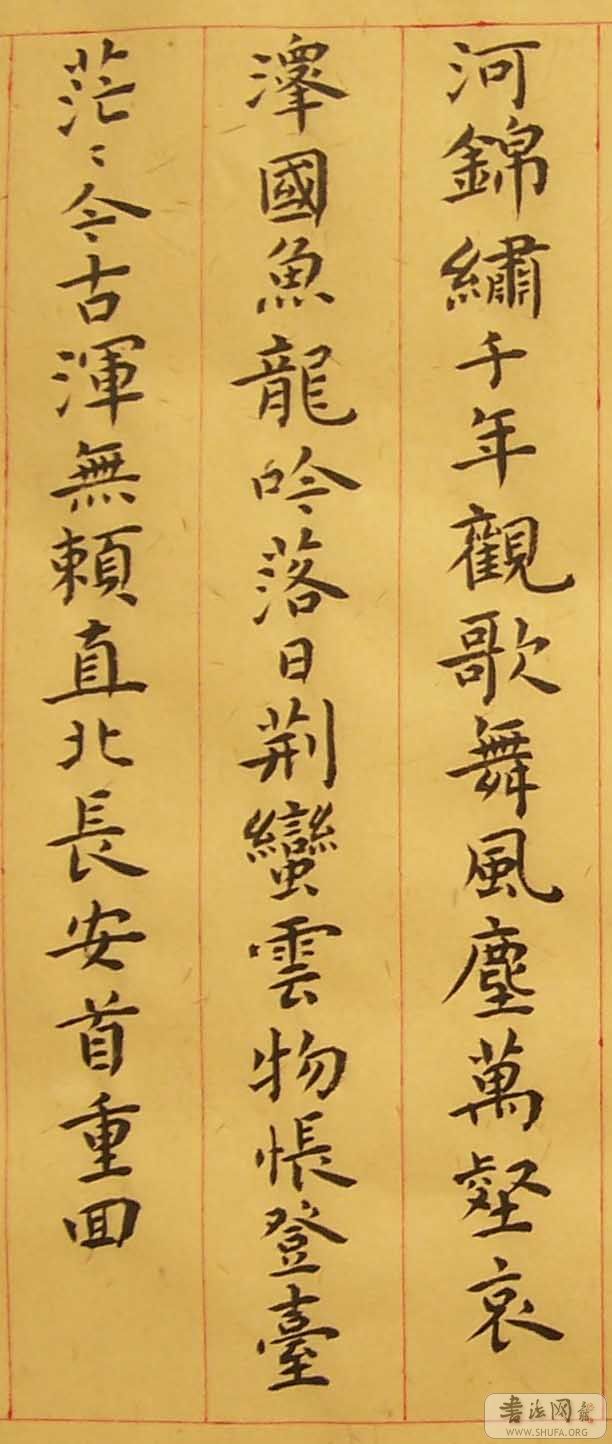 河錦繡千年觀歌舞風塵萬壑哀
澤國魚龍吟落日荆蠻雲物悵登臺
茫〻今古渾無賴直北長安首重回
書法网
WWW.SHUFA.ORG